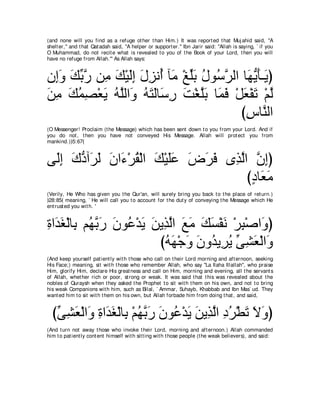 (and none will you find as a refuge other than Him.) It was reported that Mujahid said, "A
shelter,'' and that Qatadah said, "A helper or supporter.'' Ibn Jarir said: "Allah is saying, ` if you
O Muhammad, do not recite what is revealed to you of the Book of your Lord, then you will
have no refuge from Allah.''' As Allah says:
(يَـأَيُّهَا الرَّسُولُ بَلِّغْ مَآ أُنزِلَ إِلَيْكَ مِن رَّبِّكَ وَإِن
لَّمْ تَفْعَلْ فَمَا بَلَّغْتَ رِسَالَتَهُ وَاللَّهُ يَعْصِمُكَ مِنَ
النَّاسِ)
(O Messenger! Proclaim (the Message) which has been sent down to you from your Lord. And if
you do not, then you have not conveyed His Message. Allah will protect you from
mankind.)(5:67)
(إِنَّ الَّذِى فَرَضَ عَلَيْكَ الْقُرْءَانَ لَرَآدُّكَ إِلَى
مَعَادٍ)
(Verily, He Who has given you the Qur'an, will surely bring you back to the place of return.)
(28:85) meaning, ` He will call you to account for the duty of conveying the Message which He
entrusted you with. '
(وَاصْبِرْ نَفْسَكَ مَعَ الَّذِينَ يَدْعُونَ رَبَّهُم بِالْغَدَاةِ
وَالْعَشِىِّ يُرِيدُونَ وَجْهَهُ)
(And keep yourself patiently with those who call on their Lord morning and afternoon, seeking
His Face;) meaning, sit with those who remember Allah, who say "La Ilaha Illallah'', who praise
Him, glorify Him, declare His greatness and call on Him, morning and evening, all the servants
of Allah, whether rich or poor, strong or weak. It was said that this was revealed about the
nobles of Quraysh when they asked the Prophet to sit with them on his own, and not to bring
his weak Companions with him, such as Bilal, ` Ammar, Suhayb, Khabbab and Ibn Mas` ud. They
wanted him to sit with them on his own, but Allah forbade him from doing that, and said,
(وَلاَ تَطْرُدِ الَّذِينَ يَدْعُونَ رَبَّهُمْ بِالْغَدَاةِ وَالْعَشِىِّ)
(And turn not away those who invoke their Lord, morning and afternoon.) Allah commanded
him to patiently content himself with sitting with those people (the weak believers), and said: